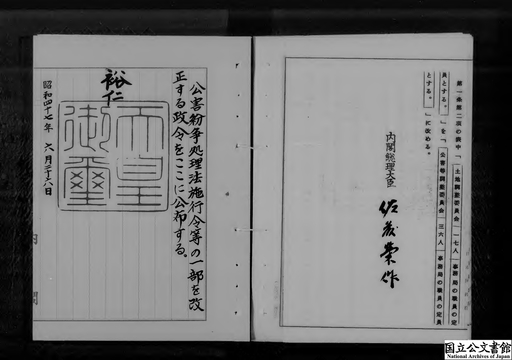 第一条第二項の表中「土地調整委員会 一七人 事務局の職員の定員とする。」を「公害等調整委員会 三六人 事務局の職員の定員とする。」に改める。
内閣総理大臣 佐藤栄作
公害紛争処理法施行令等の一部を改
正する政令をここに公布する。
裕仁
天皇
御璽
昭和四十七年 六月二十八日
内閣
国立公文書館
National Archives of Japan